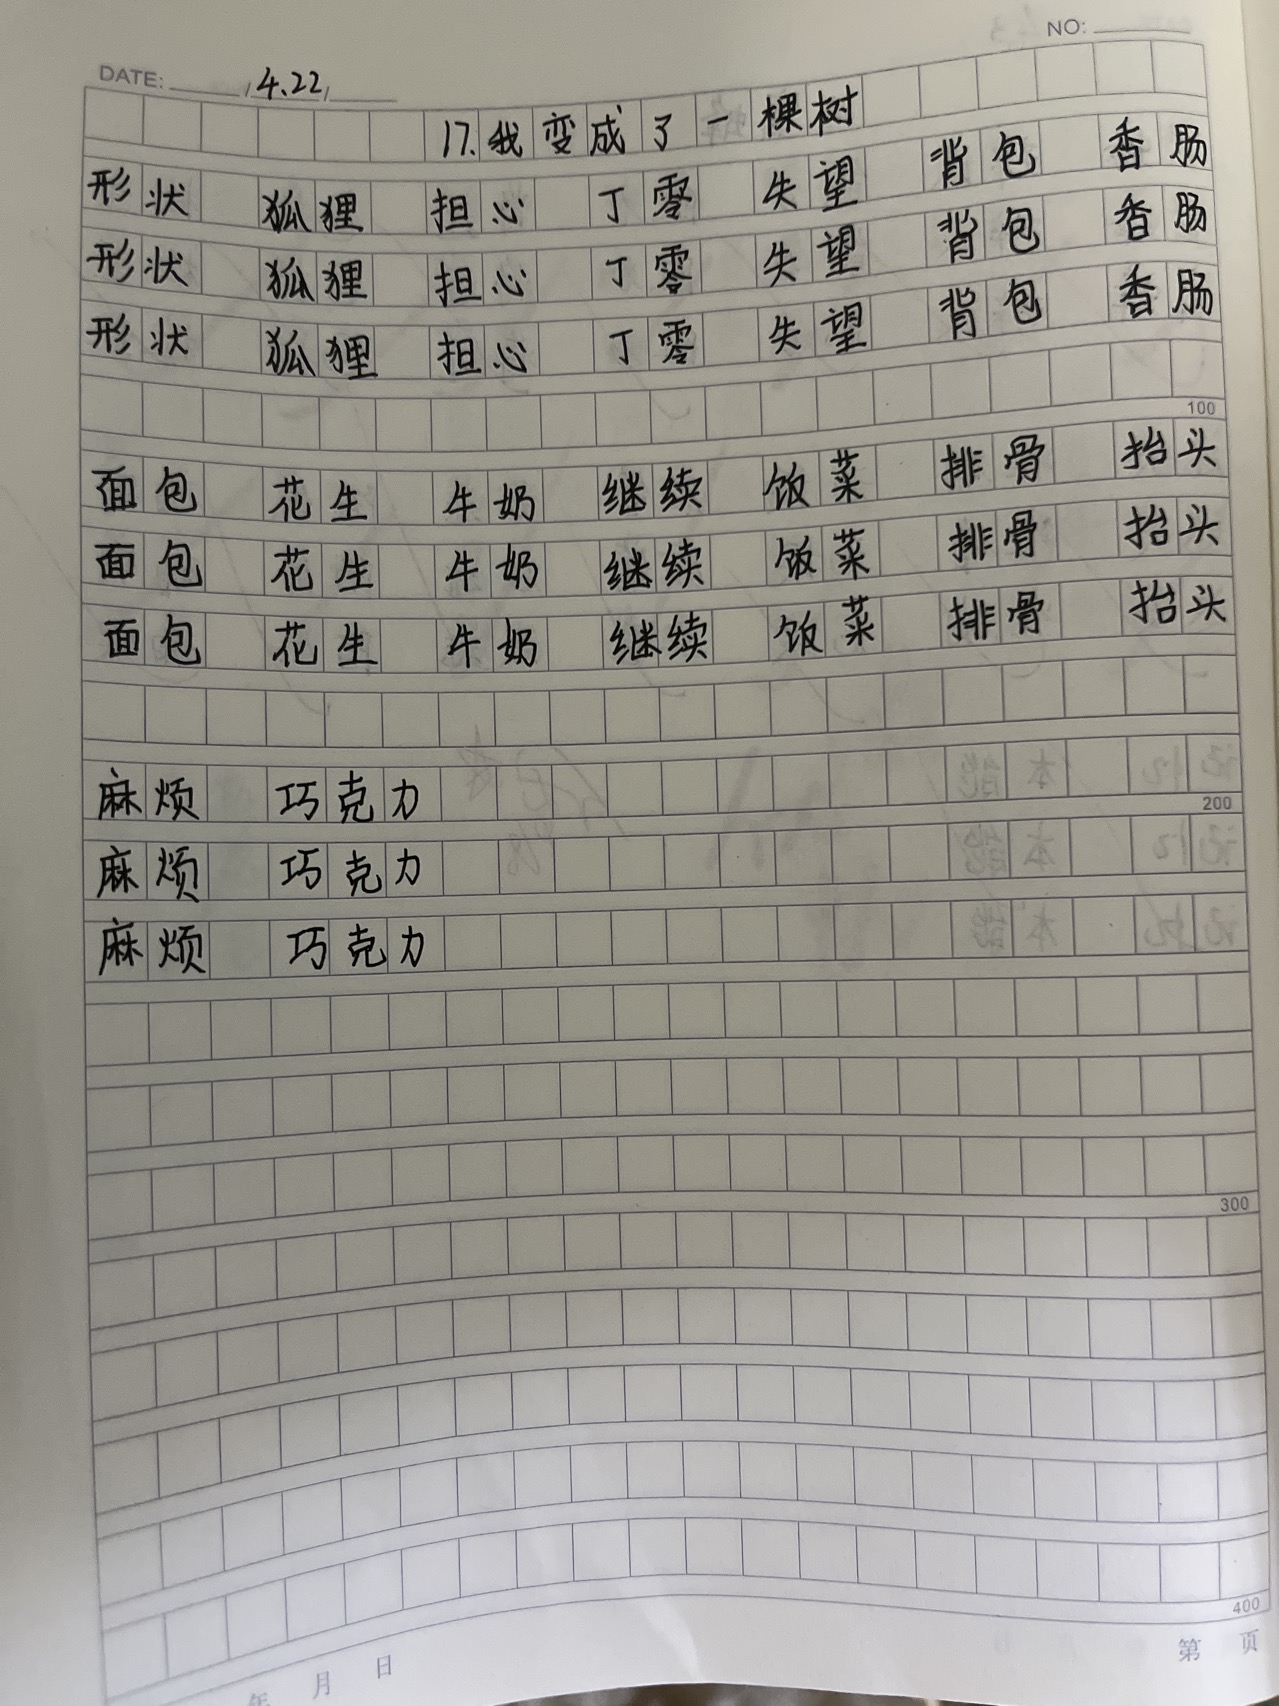 NO:
DATE: 4.22,
17.我变成了一棵树
形状 狐狸 担心 丁零 失望 背包 香肠
形状 狐狸 担心 丁零 失望 背包 香肠
形状 狐狸 担心 丁零 失望 背包 香肠
100
面包 花生 牛奶 继续 饭菜 排骨 抬头
面包 花生 牛奶 继续 饭菜 排骨 抬头
面包 花生 牛奶 继续 饭菜 排骨 抬头
麻烦 巧克力
200
麻烦 巧克力
麻烦 巧克力
300
400
年 月 日 第 页